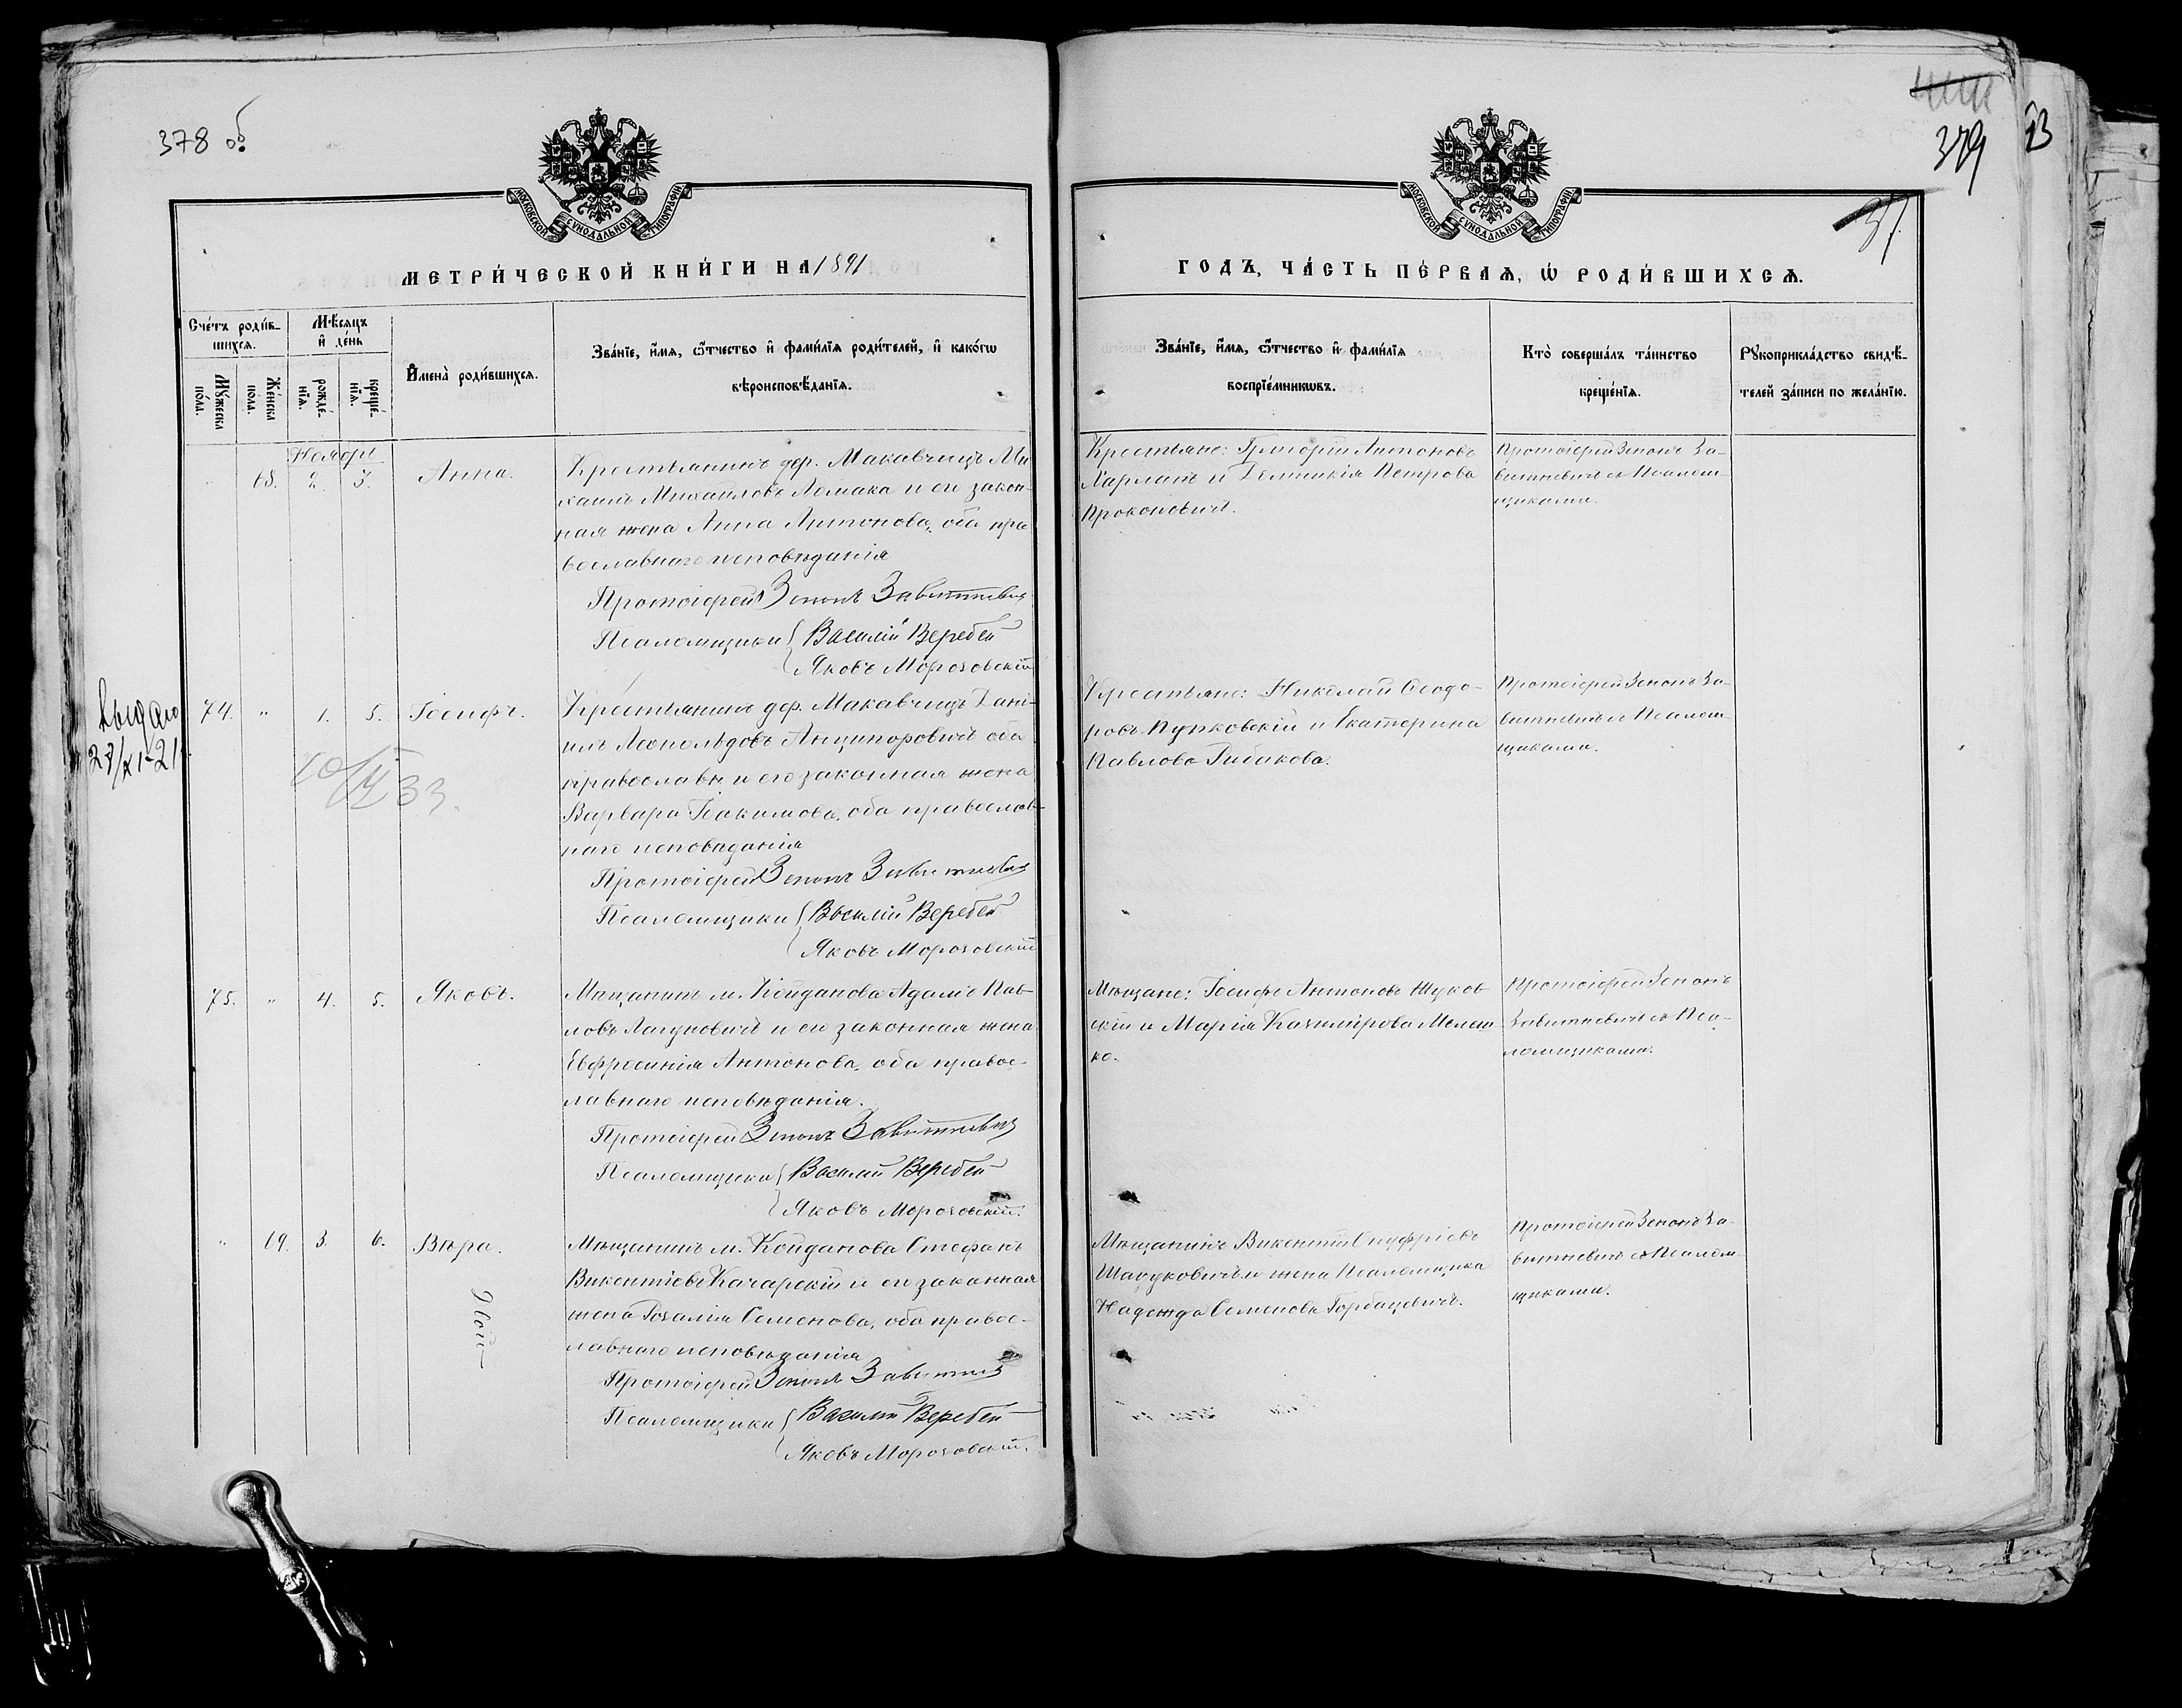 378 об
379
13
37.
МОСКОВСКОЙ СѴНОДАЛЬНОЙ ТИПОГРАФІИ
МОСКОВСКОЙ СѴНОДАЛЬНОЙ ТИПОГРАФІИ
МЕТРИ́ЧЕСКОЙ КНИ́ГИ НА 1891
ГОДЪ, ЧА́СТЬ ПЕ́РВАѦ, Ѡ РОДИ́ВШИХСѦ.
Сче́тъ роди́в-
шихсѧ.
Мꙋ́жеска
по́ла.
Же́нска
по́ла.
Мѣ́сѧцъ
и҆ де́нь
рожде́-
нїѧ.
креще́-
нїѧ.
И҆мена̀ роди́вшихсѧ.
Зва́нїе, и҆́мѧ, ѻ҆́тчество и҆ фами́лїѧ роди́телей, и҆ како́гѡ
вѣроисповѣ́данїѧ.
Зва́нїе, и҆́мѧ, ѻ҆́тчество и҆ фами́лїѧ
воспрїе́мникѡвъ.
Кто̀ соверша́лъ та́инство
креще́нїѧ.
Рꙋкоприкла́дство свидѣ́-
телей за́писи по жела́нїю.
Ноябрь
" 68. 2. 3. Анна.
Крестьянинъ дер. Макавчицъ Ми-
хаилъ Михайловъ Ломака и его закон-
ная жена Анна Антонова, оба пра-
вославнаго исповѣданія
Протоіерей Зенонъ Завитневичъ
Псаломщики { Василій Веребей
Яковъ Морозовскій
Крестьяне: Григорій Антоновъ
Харланъ и Петрова
Прокоповичъ.
Протоіерей Зенонъ За-
витневичъ съ Псалом-
щиками.
Выдано
27/XI-21
74. " 1. 5. Іосифъ.
33.
Крестьянинъ дер. Макавчицъ Дані-
илъ Леопольдовъ Анципоровичъ оба
православн и его законная жена
Варвара Іоакимова, оба православ-
наго исповѣданія
Протоіерей Зенонъ Завитневичъ
Псаломщики { Василій Веребей
Яковъ Морозовскій
Крестьяне: Николай Ѳеодо-
ровъ Пупковскій и Екатерина
Павлова Рибакова.
Протоіерей Зенонъ За-
витневичъ съ Псалом-
щиками.
75. " 4. 5. Яковъ.
Мѣщанинъ м. Койданова Адамъ Пав-
ловъ Лагуновичъ и его законная жена
Евфросинія Антонова, оба правос-
лавнаго исповѣданія.
Протоіерей Зенонъ Завитневичъ
Псаломщики { Василій Веребей
Яковъ Морозовскій.
Мѣщане: Іосифъ Антоновъ Жуков-
скій и Марія Казимірова Мелеш-
ко.
Протоіерей Зенонъ
Завитневичъ съ Пса-
ломщиками.
" 69. 3. 6. Вѣра.
Мѣщанинъ м. Койданова Стефанъ
Викентіевъ Качарскій и его законная
жена Розалія Семенова, оба правос-
лавнаго исповѣданія
Протоіерей Зенонъ Завитневичъ
Псаломщики { Василій Веребей
Яковъ Морозовскій.
Мѣщанинъ Викентій Онуфріевъ
Шацуковичъ и жена Псаломщика
Надежда Семенова Горбацевичъ.
Протоіерей Зенонъ За-
витневичъ съ Псалом-
щиками.